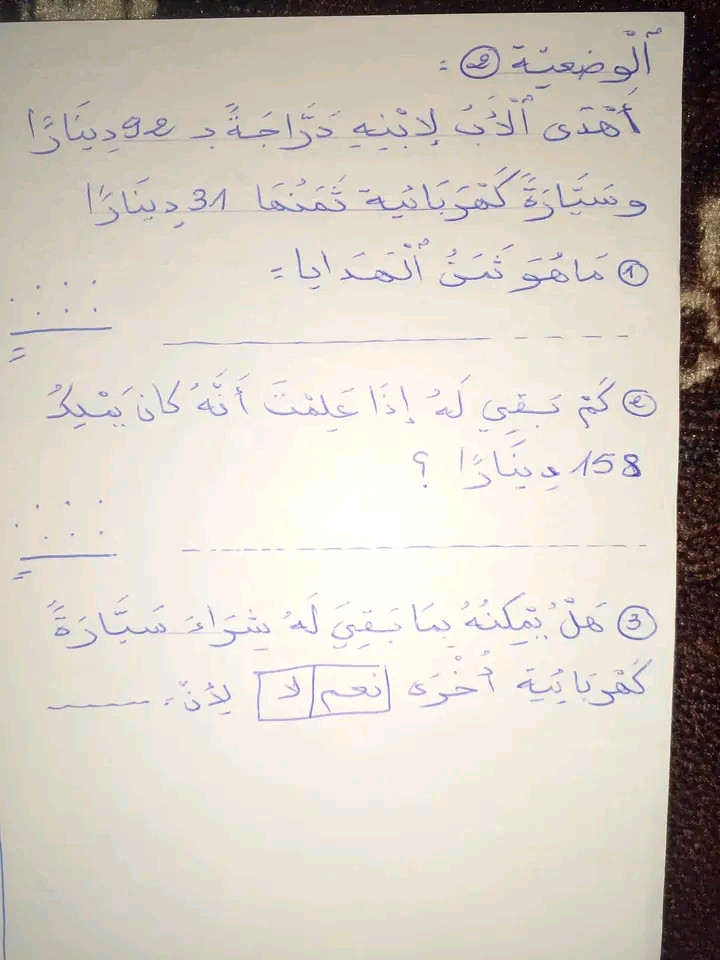 ٱلْوضعيّة ② :
أَهْدَى ٱلْأَبُ لِابْنِهِ دَرَّاجَةً بـ 92 دِينَارًا
و سَيَّارَةً كَهْرَبَائية ثَمَنُهَا 31 دِينَارًا
① مَا هُوَ ثَمَنُ ٱلْهَدَايا :
② كَمْ بَقِي لَهُ إِذَا عَلِمْتَ أَنَّهُ كان يَمْلِكُ
158 دِينَارًا ؟
③ هَلْ يُمْكِنُهُ بِمَا بَقِيَ لَهُ شِرَاءَ سَيَّارَةً
كَهْرَبَائِيَة أُخْرَى نعم لا لِأنّ :